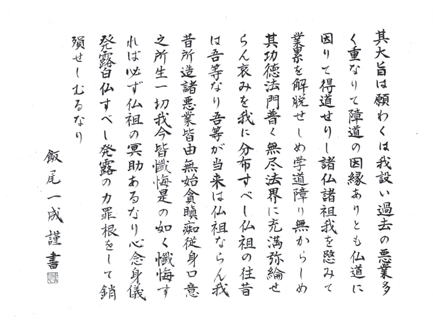 其大旨は願わくは我設い過去の悪業多
く重なりて障道の因縁ありとも仏道に
因りて得道せりし諸仏諸祖我を愍みて
業累を解脱せしめ学道障り無からしめ
其功徳法門普く無尽法界に充満弥綸せ
らん哀みを我に分布すべし仏祖の往昔
は吾等なり吾等が当来は仏祖ならん我
昔所造諸悪業皆由無始貪瞋痴従身口意
之所生一切我今皆懺悔是の如く懺悔す
れば必ず仏祖の冥助あるなり心念身儀
発露白仏すべし発露の力罪根をして銷
殞せしむるなり
飯尾一成謹書